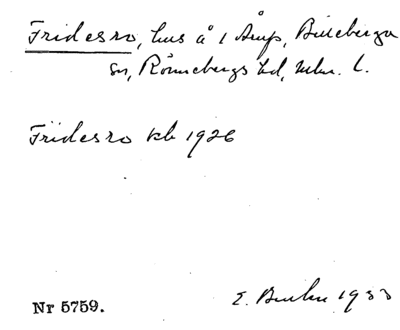 Fridesro, hus å 1 Åmp, Billeberga
sn, Rönnebergs hd, Mlm. l.
Fridesro kb 1926
Nr 5759.
E. 1933